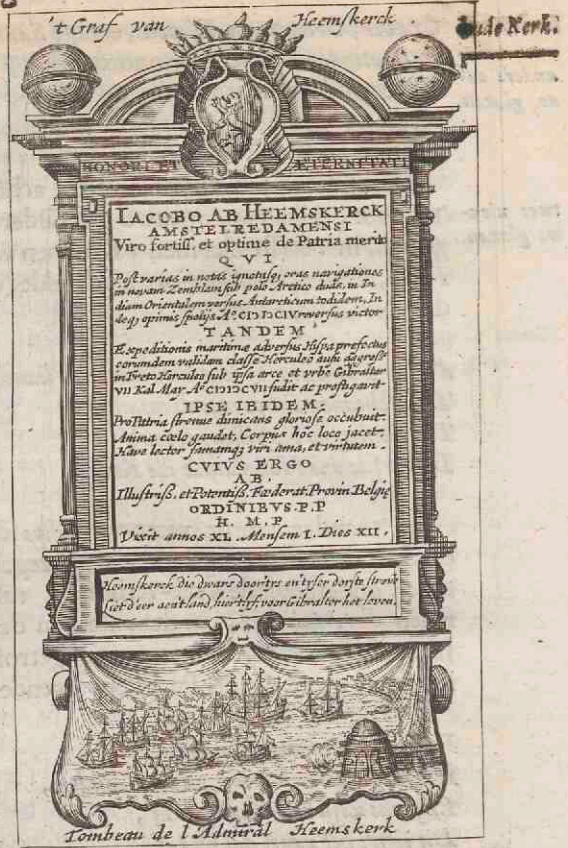 't Graf van Heemskerck
oude Kerk.
HONORI ET ÆTERNITATI
IACOBO AB HEEMSKERCK
AMSTELREDAMENSI
Viro fortiss. et optime de Patria merito
QVI
Post varias in notas ignotasq; oras navigationes
in novam Zemblam sub polo Arctico duas, in In
diam Orientalem versus Antarcticum todidem, In
deq; opimis spolijs Aº. CIƆIƆCIV reversus victor
TANDEM
Expeditionis maritimæ adversus Hispa prefectus
eorundem validam classe Herculeo ausu aggress'
in Freto Herculeo sub ipsa arce et vrbe Gibraltar
VII Kal. May Aº CIƆIƆCVII fudit ac profligavit
IPSE IBIDEM.
Pro Patria strenue dimicans gloriose occubuit.
Anima cœlo gaudet, Corpus hoc loco jacet.
Have lector famamq; viri ama, et virtutem.
CVIVS ERGO
AB.
Illustriss. et Potentiss. Fæderat. Provin. Belgię
ORDINIBVS. P.P
H. M. P
Vixit annos XL. Mensem I. Dies XII.
Heemskerck die dwars door tys en tyser dorste streve
Liet d'eer aen't land, hier tlyf, voor Gibralter het leven.
Tombeau de l Admiral Heemskerk